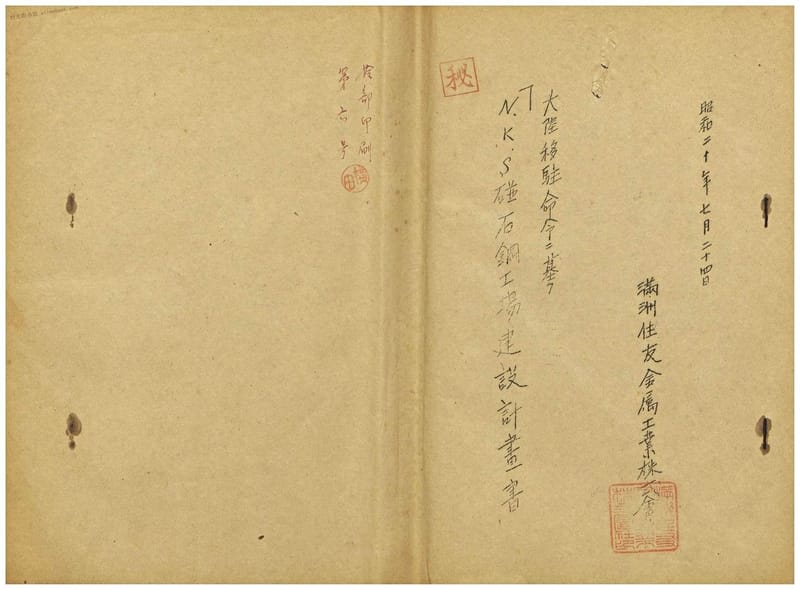 昭和二十年七月二十四日
満洲住友金属工業株式会社
大陸移駐命令ニ基ク
N.K.S磁石鋼工場建設計畫書
秘
部印刷
第六号